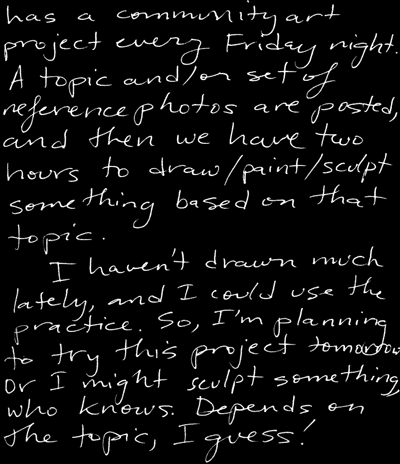 has a community art
project every Friday night.
A topic and/or set of
reference photos are posted,
and then we have two
hours to draw/paint/sculpt
something based on that
topic.
I haven't drawn much
lately, and I could use the
practice. So, I'm planning
to try this project tomorrow
Or I might sculpt something,
who knows. Depends on
the topic, I guess!